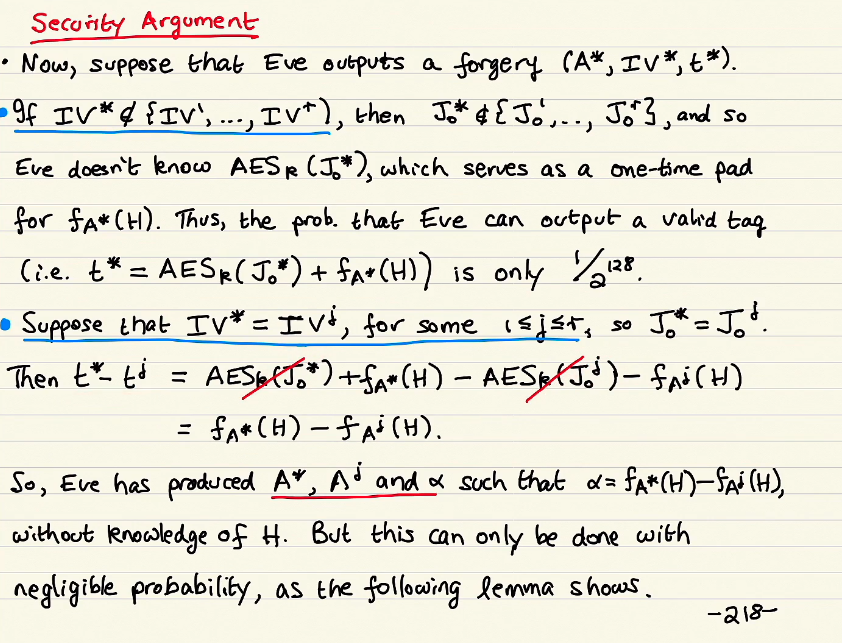 Security Argument
• Now, suppose that Eve outputs a forgery (A*, IV*, t*).
• If IV* ∉ {IV¹, ..., IVʳ}, then J₀* ∉ {J₀¹, .., J₀ʳ}, and so
Eve doesn't know AESₖ(J₀*), which serves as a one-time pad
for f_A*(H). Thus, the prob. that Eve can output a valid tag
(i.e. t* = AESₖ(J₀*) + f_A*(H)) is only 1/2¹²⁸.
• Suppose that IV* = IVʲ, for some 1≤j≤r, so J₀* = J₀ʲ.
Then t* - tʲ = AESₖ(J₀*) + f_A*(H) - AESₖ(J₀ʲ) - f_Aʲ(H)
= f_A*(H) - f_Aʲ(H).
So, Eve has produced A*, Aʲ and α such that α = f_A*(H) - f_Aʲ(H),
without knowledge of H. But this can only be done with
negligible probability, as the following lemma shows.
-218-